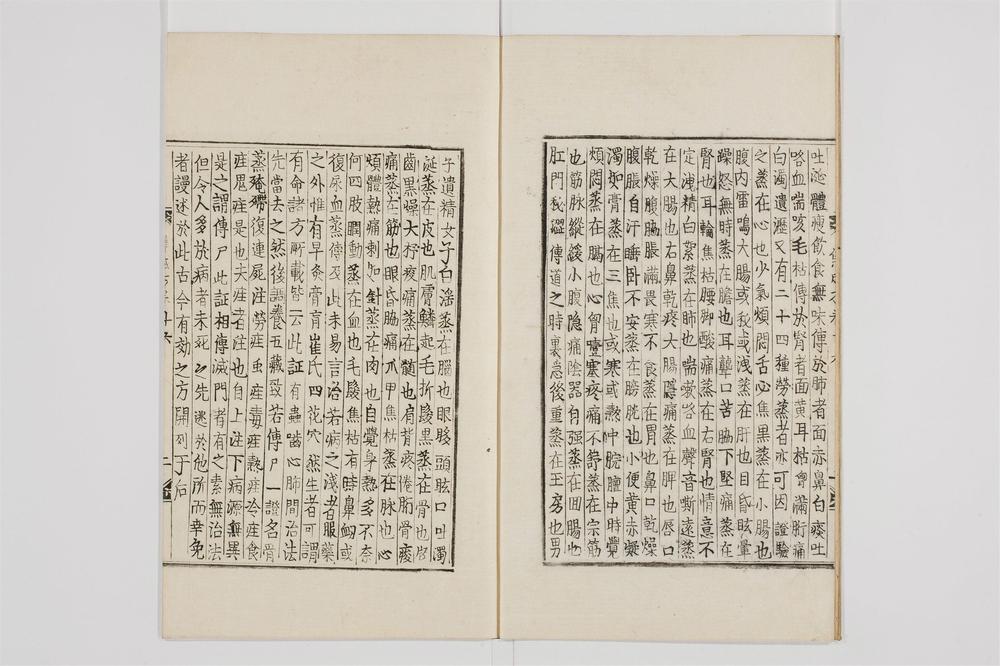 吐涎體瘦飲食無味傳於肺者面赤鼻白痰吐
咯血喘咳毛枯傳於腎者面黃耳枯胷滿胻痛
白濁遺瀝又有二十四種勞蒸者亦可因證驗
之蒸在心也少氣煩悶舌必焦黑蒸在小腸也
腹內雷鳴大腸或秘或洩蒸在肝也目昏眩暈
躁怒無時蒸在膽也耳聾口苦脇下堅痛蒸在
腎也耳輪焦枯腰脚酸痛蒸在右腎也情意不
定洩精白絮蒸在肺也喘嗽咯血聲音嘶遠蒸
在大腸也右鼻乾疼大腸隱痛蒸在脾也唇口
乾燥腹脇脹滿畏寒不食蒸在胃也鼻口乾燥
腹脹自汗睡卧不安蒸在膀胱也小便黃赤凝
濁如膏蒸在三焦也或寒或熱中脘膻中時覺
煩悶蒸在膈也心胷噎塞疼痛不舒蒸在宗筋
也筋脉縱緩小腹隐痛陰器自强蒸在回腸也
肛門秘澀傳道之時裏急後重蒸在玉房也男
子遺精女子白淫蒸在腦也眼眵頭眩口吐濁
涎蒸在皮也肌膚鱗起毛折髮黑蒸在骨也
齒黑燥大杼痠痛蒸在髓也肩背疼倦胻骨痠
痛蒸在筋也眼昏脇痛爪甲焦枯蒸在脉也心
煩體熱痛刺如針蒸在肉也自覺身熱多不奈
何四肢瞤動蒸在血也毛髮焦枯有時鼻衂或
復尿血蒸傳及此未易言治若病之淺者服藥
之外惟有早灸膏肓崔氏四花穴 然生者可謂
有命諸方所載皆云此証有蟲嚙心肺間治法
先當去之然後調養五藏致若傳尸一證名骨
蒸殗殜復連屍注勞疰虫疰毒疰熱疰冷疰食
疰鬼疰是也夫疰者注也自上注下病源無異
是之謂傳尸此証相傳滅門者有之素無治法
但令人多於病者未死之先逃於他所而幸免
者謾述於此古今有効之方開列于后
二